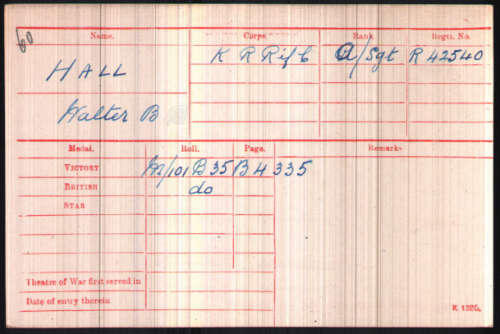 60
Name. Corps. Rank. Regtl. No.
HALL K R Rif C A/Sgt R 42540
Walter B
Medal. Roll. Page. Remarks
VICTORY M/101 B35 B4335
BRITISH do
STAR
Theatre of War first served in
Date of entry therein
K 1380.